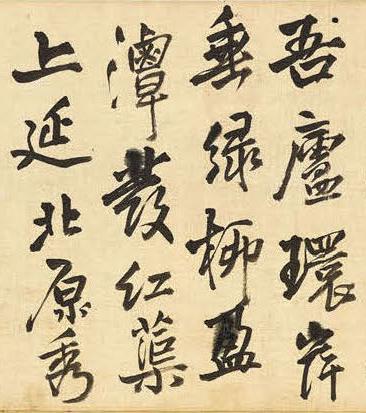 吾廬環岸
垂綠柳盈
潭發紅蕖
上延北原秀